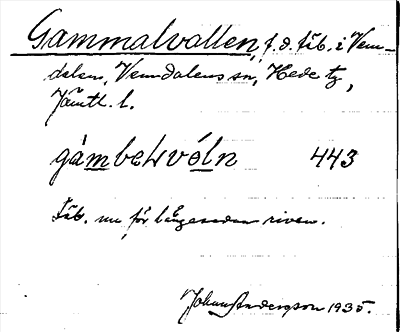 Gammalvallen, f.d. fäb. i Vem-
dalen, Vemdalens sn, Hede tg,
Jämtl. l.
gàmbeLvóln 443
Fäb. nu för längesedan riven.
Johan Anderzson 1935.